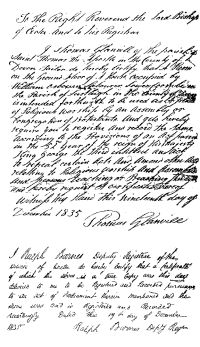 To the Right Reverend the Lord Bishop
of and to his Registrar
I Thomas Glanville of the parish of
Saint Thomas the in the County of
Devon do hereby certify that a Room
on the Ground floor of a house occupied by
William
the Parish of in the County of
intended forthwith to be used as a place
of Religious worship by an Assembly or
Congregation of Protestants and I do hereby
require you to register and record the same
according to the provisions of an Act passed
in the year of the reign of His Majesty
King George the Third entitled An Act
to repeal certain Acts and amend other Acts
relating to religious worship and assemblies
and persons teaching or preaching therein
and hereby request a certificate thereof
Witness my hand this Nineteenth day of
December 1835
Thomas Glanville
I Ralph Barnes Deputy Registrar of the
of do hereby certify that a certificate
of which the above is a true copy was this day
delivered to me to be registered and recorded pursuant
to an act of Parliament therein mentioned and the
same was registered and recorded
accordingly Dated this 19th day of December
1835
Ralph Barnes